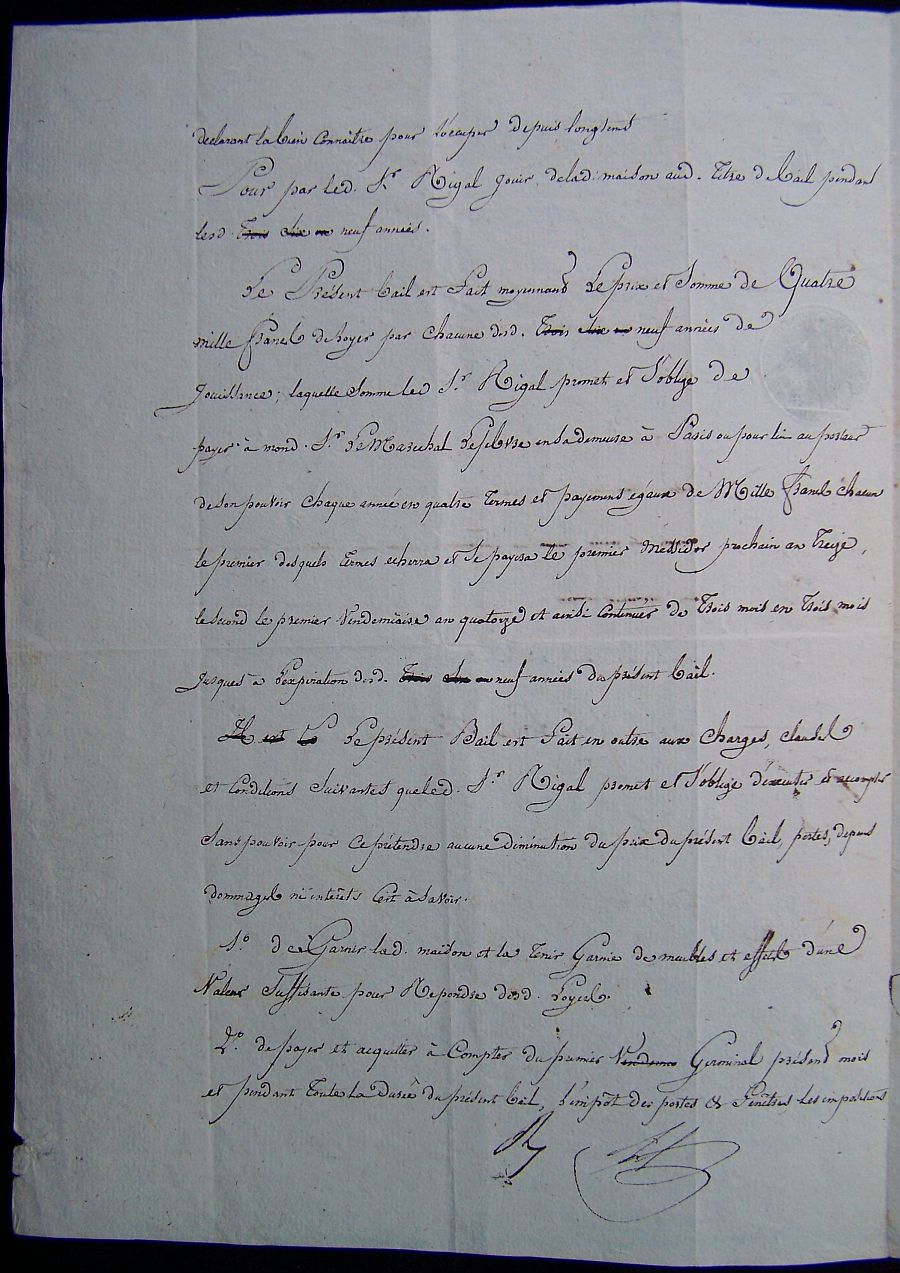 declarant la bien connaitre pour l'occuper depuis longtems
Pour par led. Sr. Rigal Jouir delad. maison aud. Titre de bail pendant
lesd. Trois Six ou neuf années.
Le Présent bail est Fait moyennant Le prix et Somme de Quatre
mille francs de loyer par chacune desd. Trois Six ou neuf années de
Jouissance; laquelle Somme led Sr. Rigal promet et S'oblige de
payer à mond. Sr. Le Marechal Lefebvre en sa demeure à Paris ou pour lui au porteur
de son pouvoir chaque année en quatre Termes et payemens égaux de Mille francs chacun
le premier desquels termes echerra et Se payera le premier messidor prochain an Treize,
le Second le premier Vendemiaire an quatorze et ainsi Continuer de Trois mois en Trois mois
Jusques à L'expiration desd. Trois Six ou neuf années du présent bail.
Le présent Bail est Fait en outre aux Charges, clauses
et Conditions Suivantes que led. Sr. Rigal promet et S'oblige d'executer et accomplir
Sans pouvoir pour Ce prétendre aucune diminution du prix du présent bail, pertes, depens
dommages ni interêts C'est à Savoir.
1.o de Garnir lad. maison et la Tenir Garnie de meubles et effets d'une
Valeur Suffisante pour Repondre desd. Loyers.
2.o de payer et acquitter à Compter du premier Germinal présent mois
et pendant Toute la Durée du présent bail, l'impôt des portes & Fenêtres Les impositions